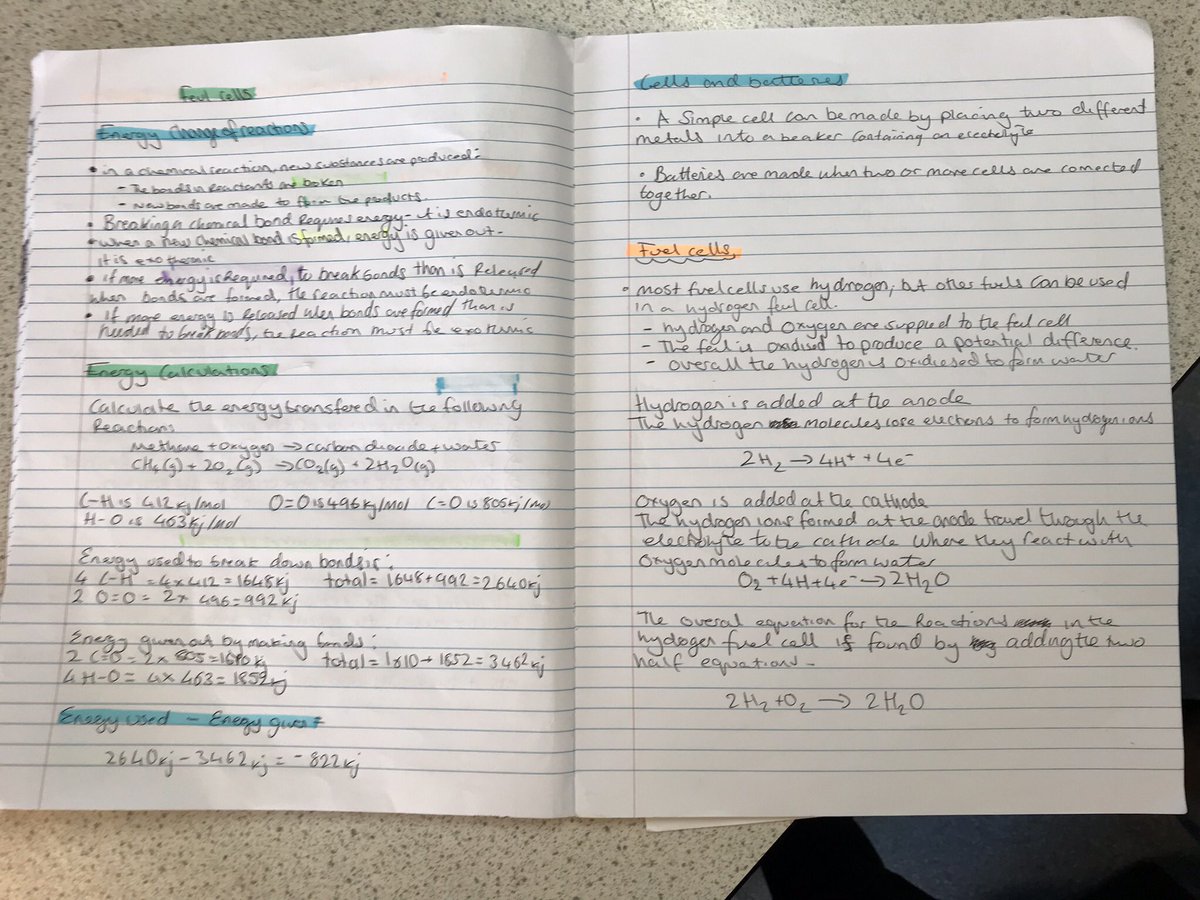 Feul cells
Energy change of reactions
• in a chemical reaction, new substances are produced:
- The bonds in Reactants are broken
- New bonds are made to form the products.
• Breaking a chemical bond Requires energy - it is endotermic
• when a new chemical bond is formed, energy is given out -
it is exothermic
• if more energy is Required, to break bonds than is Released
when bonds are formed, the reaction must be endotermic
• If more energy is Released when bonds are formed than is
needed to break bonds, the reaction must be exotermic
Energy Calculations
Calculate the energy transfered in the following
Reactions
Methane + oxygen → carbon dioxide + water
CH₄(g) + 2O₂(g) → CO₂(g) + 2H₂O(g)
C-H is 412kj/mol O=O is 496kj/mol C=O is 805kj/mol
H-O is 463kj/mol
Energy used to break down bonds is:
4 C-H = 4x412 = 1648kj total = 1648+992 = 2640kj
2 O=O = 2x 496 = 992kj
Energy given out by making bonds:
2 C=O = 2x 805 = 1610kj total = 1610 + 1852 = 3462kj
4 H-O = 4x 463 = 1852kj
Energy used - Energy given =
2640kj - 3462kj = -822kj
Cells and batteries
• A Simple cell can be made by placing two different
metals into a beaker containing an electrolyte
• Batteries are made when two or more cells are connected
together.
Fuel cells
• most fuel cells use hydrogen, but other fuels can be used
in a hydrogen fuel cell.
- hydrogen and oxygen are supplied to the feul cell
- The feul is oxidised to produce a potential difference.
- overall the hydrogen is oxidiesed to form water
Hydrogen is added at the anode
The hydrogen molecules lose electrons to form hydrogen ions
2H₂ → 4H⁺ + 4e⁻
Oxygen is added at the cathode
The hydrogen ions formed at the anode travel through the
electrolyte to the cathode where they react with
oxygen molecules to form water
O₂ + 4H + 4e⁻ → 2H₂O
The overal equation for the Reactions in the
hydrogen fuel cell is found by adding the two
half equations -
2H₂ + O₂ → 2H₂O